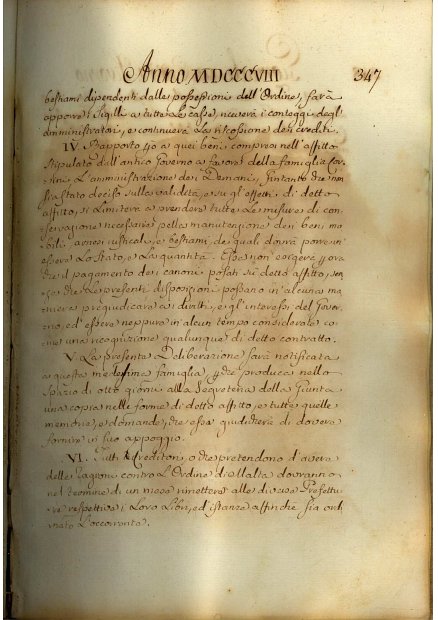 Anno MDCCCVIII 347
bestiami dipendenti dalle possessioni dell'Ordine, farà
apporre i Sigilli a tutte le casse, riceverà i conteggi degl'
amministratori, e continuerà la riscossione dei crediti.
IV. Rapporto poi a quei beni compresi nell'affitto
stipulato dall'antico Governo a favore della famiglia
l'amministrazione dei Demani, fintanto che non
sia stato deciso sulla validità, e sugl'effetti di detto
affitto, si limiterà a prendere tutte le misure di con-
servazione necessarie pella manutenzione dei beni mo-
bili, arnesi rusticali, e bestiami, dei quali dovrà porre in
essere lo stato, e la quantità. Essa non esigerà
il pagamento dei canoni posati su detto affitto, sen-
za che le presenti disposizioni possano in alcuna ma-
niera pregiudicare ai diritti, e agl'interessi del Gover-
no, ed essere neppure in alcun tempo considerate co-
me una ricognizione qualunque di detto contratto.
V. La presente Deliberazione sarà notificata
a questa medesima famiglia, perche produca nello
spazio di otto giorni alla Segreteria della Giunta
una copia nelle forme di detto affitto, e tutte quelle
memorie, e domande, che essa giudicherà di dovere
fornire in suo appoggio.
VI. Tutti i Creditori, o che pretendono d'avere
delle ragioni contro l'Ordine di Malta dovranno
nel termine di un mese rimettere alle diverse Prefettu-
re respettive i loro libri, ed istanze affinchè sia ordi-
nato l'occorrente.